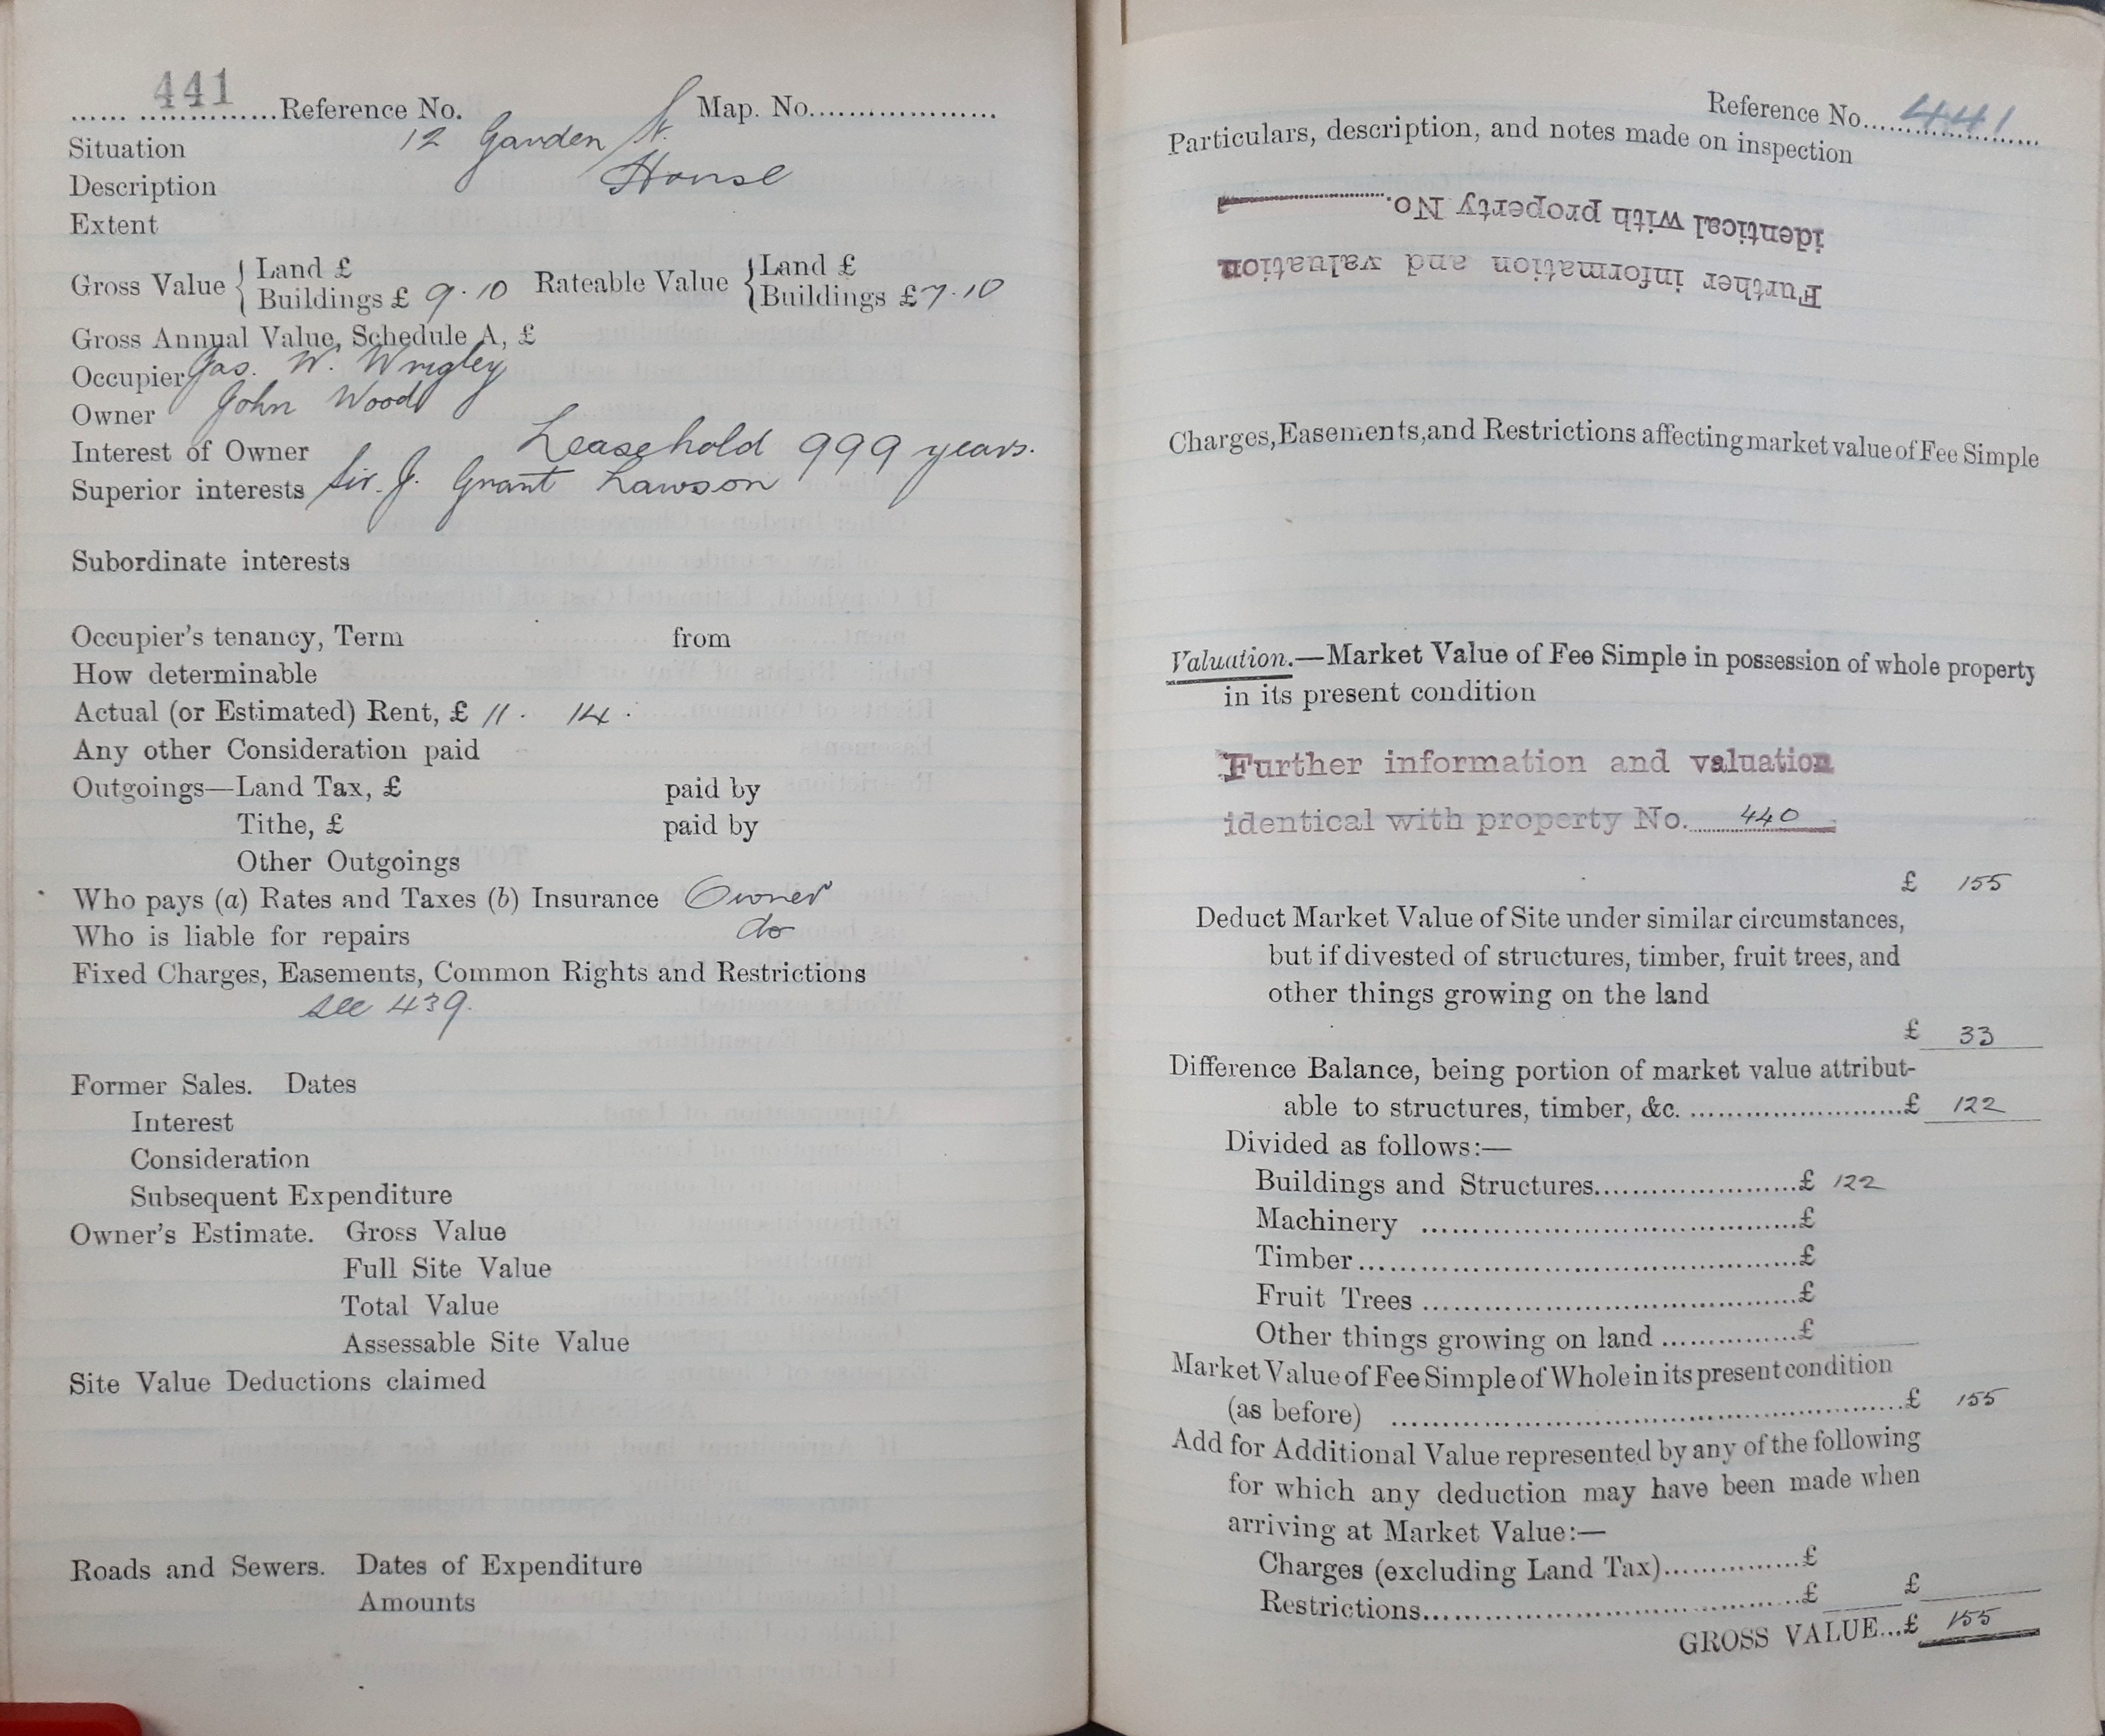 441
...... ..............Reference No. Map. No...................
Situation 12 Garden St.
Description House
Extent
Gross Value { Land £
Buildings £ 9.10 Rateable Value { Land £
Buildings £7.10
Gross Annual Value, Schedule A, £
Occupier Jas. W. Wrigley
Owner John Wood
Interest of Owner Leasehold 999 years.
Superior interests Sir. J. Grant Lawson
Subordinate interests
Occupier's tenancy, Term from
How determinable
Actual (or Estimated) Rent, £ 11. 14.
Any other Consideration paid
Outgoings—Land Tax, £ paid by
Tithe, £ paid by
Other Outgoings
Who pays (a) Rates and Taxes (b) Insurance Owner
Who is liable for repairs do
Fixed Charges, Easements, Common Rights and Restrictions
see 439.
Former Sales. Dates
Interest
Consideration
Subsequent Expenditure
Owner's Estimate. Gross Value
Full Site Value
Total Value
Assessable Site Value
Site Value Deductions claimed
Roads and Sewers. Dates of Expenditure
Amounts
Reference No. 441
Particulars, description, and notes made on inspection
Further information and valuation
identical with property No.
Charges, Easements, and Restrictions affecting market value of Fee Simple
Valuation.—Market Value of Fee Simple in possession of whole property
in its present condition
Further information and valuation
identical with property No. 440
£ 155
Deduct Market Value of Site under similar circumstances,
but if divested of structures, timber, fruit trees, and
other things growing on the land
£ 33
Difference Balance, being portion of market value attribut-
able to structures, timber, &c. ........................£ 122
Divided as follows:—
Buildings and Structures......................£ 122
Machinery .....................................£
Timber...........................................£
Fruit Trees .....................................£
Other things growing on land ..............£
Market Value of Fee Simple of Whole in its present condition
(as before) ....................................................£ 155
Add for Additional Value represented by any of the following
for which any deduction may have been made when
arriving at Market Value:—
Charges (excluding Land Tax)..............£
Restrictions......................................£ £
GROSS VALUE...£ 155